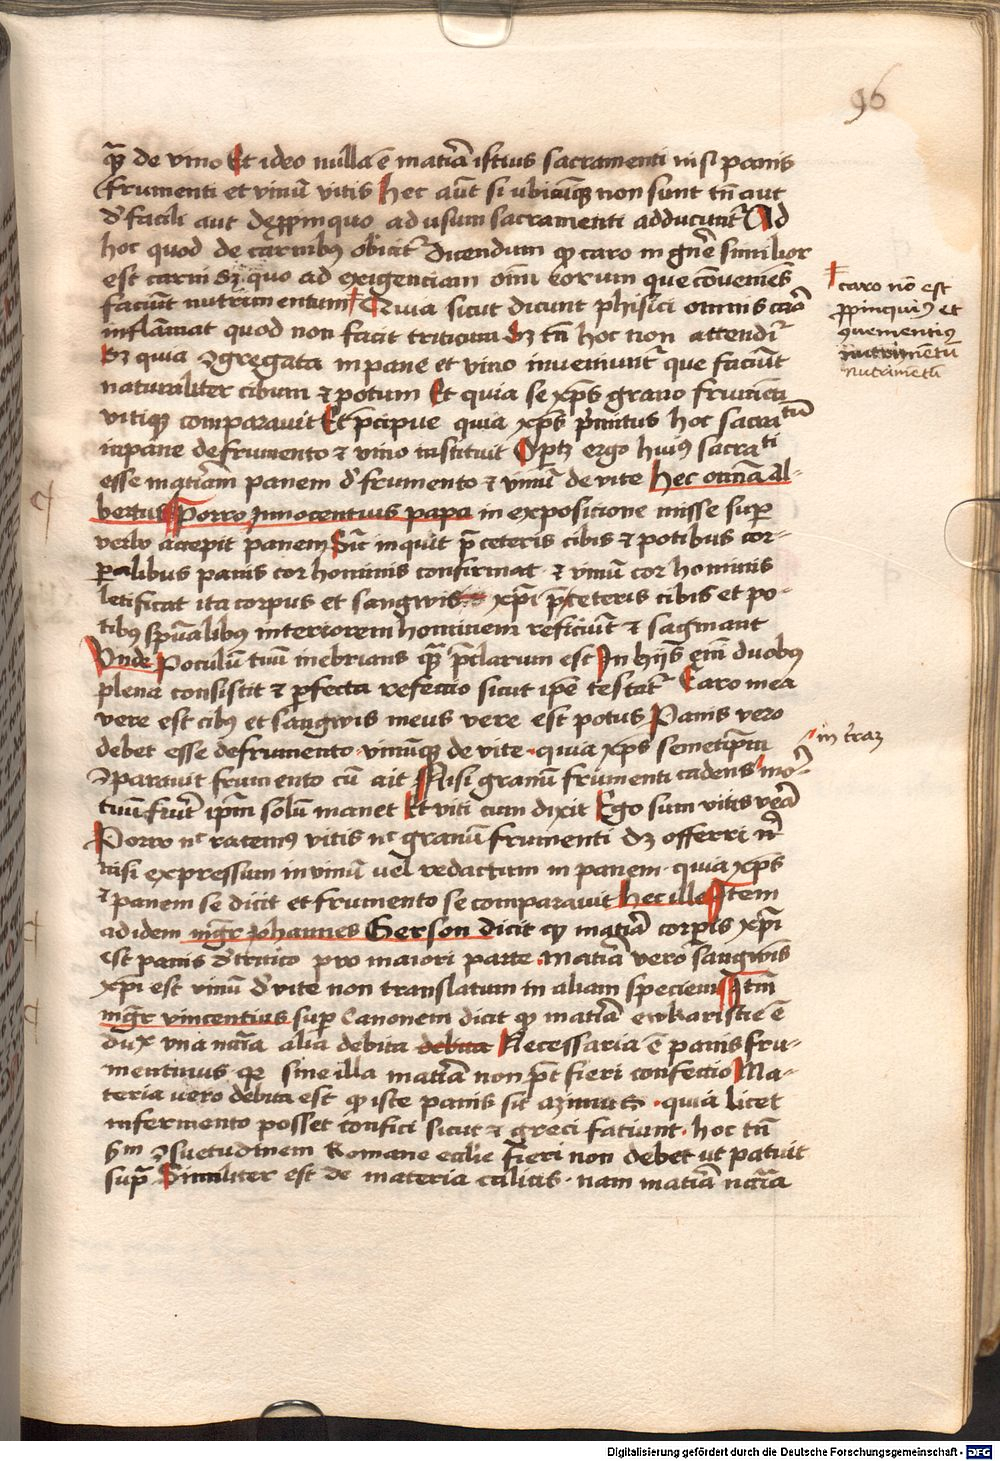 96
q̄ꝫ de vino Et ideo nulla ē mat̄ia istius sacramenti nisi panis
frumenti et vinū vitis Hec aūt si ubicūqꝫ non sunt tn̄ aut
d' facili aut de ꝓpinquo ad usum sacramenti adducunt̄ Ad
hoc quod de carnibꝰ obicit̄ dicendum qꝙ caro in gn̄e similior
est carni sꝫ quo ad exigenciam oīm eorum que cōveniēs
faciūt nutrimentum Quia sicut dicunt phisici omnis caro
inflāmat quod non facit triticum Sꝫ tn̄ hoc non attendit̄
Sꝫ quia ꝯgregata in pane et vino inveniunt̄ que faciūt
naturaliter cibum ⁊ potum Et quia se xp̄s grano frumēti
vitiqꝫ comparavit Et p̄cipue quia xp̄s p̄mitus hoc sacratū
in pane de frumento ⁊ vino instituit Oportꝫ ergo huiꝰ sacrati
esse mat̄iam panem d' frumento ⁊ vinū de vite Hec om̄ia al-
bertus Porro Innocentius papa in exposicione misse sup̄
verbo accepit panem Sic̄ inquit p̄ ceteris cibis ⁊ potibus cor-
ꝑalibus panis cor hominis confirmat ⁊ vinū cor hominis
letificat ita corpus et sangwis xp̄i p̄ ceteris cibis et po-
tibꝰ sp̄ualibꝰ interiorem hominem reficiūt ⁊ saginant
Unde Poculū tuū inebrians q̄ꝫ p̄clarum est In hijs em̄ duobꝰ
plena consistit ⁊ ꝑfecta refectio sicut ip̄e testat̄ Caro mea
vere est cibꝰ et sangwis meus vere est potus Panis vero
debet esse de frumento vinūqꝫ de vite quia xp̄s semetip̄m
ꝯparavit frumento cū ait Nisi granū frumenti cadens mor-
tuū fuerit ip̄m solū manet Et viti cum dixit Ego sum vitis vera
Porro nc̄ racemꝰ vitis nc̄ granū frumenti dꝫ offerri
nisi expressum in vinū vel redactum in panem quia xp̄s
⁊ panem se dicit et frumento se comparavit Hec ille Item
ad idem mgr̄ Johannes Gerson dicit qꝙ mat̄ia corꝑis xp̄i
est panis d' tritico pro maiori parte Mat̄ia vero sangwis
xp̄i est vinū d' vite non translatum in aliam speciem Itm̄
mgr̄ vincentius sup̄ Canonem dicit qꝙ mat̄ia ewkaristie ē
dux una nc̄ia alia debita debita Necessaria ē panis fru-
mentinus qꝛ sine illa mat̄ia non p̄t fieri confectio Ma-
teria vero debita est qꝙ iste panis sit azimus quia licet
in fermento posset confici sicut ⁊ greci faciunt hoc tn̄
scd̄m ꝯsuetudinem Romane eccl̄ie fieri non debet ut patuit
sup̄ Similiter est de materia calicis nam mat̄ia nc̄ia
caro nō est
ꝓpinquiꝰ et
ꝯvenientiꝰ
nutrimētū
nutrimētū
in t̄rā
Digitalisierung gefördert durch die Deutsche Forschungsgemeinschaft - DFG